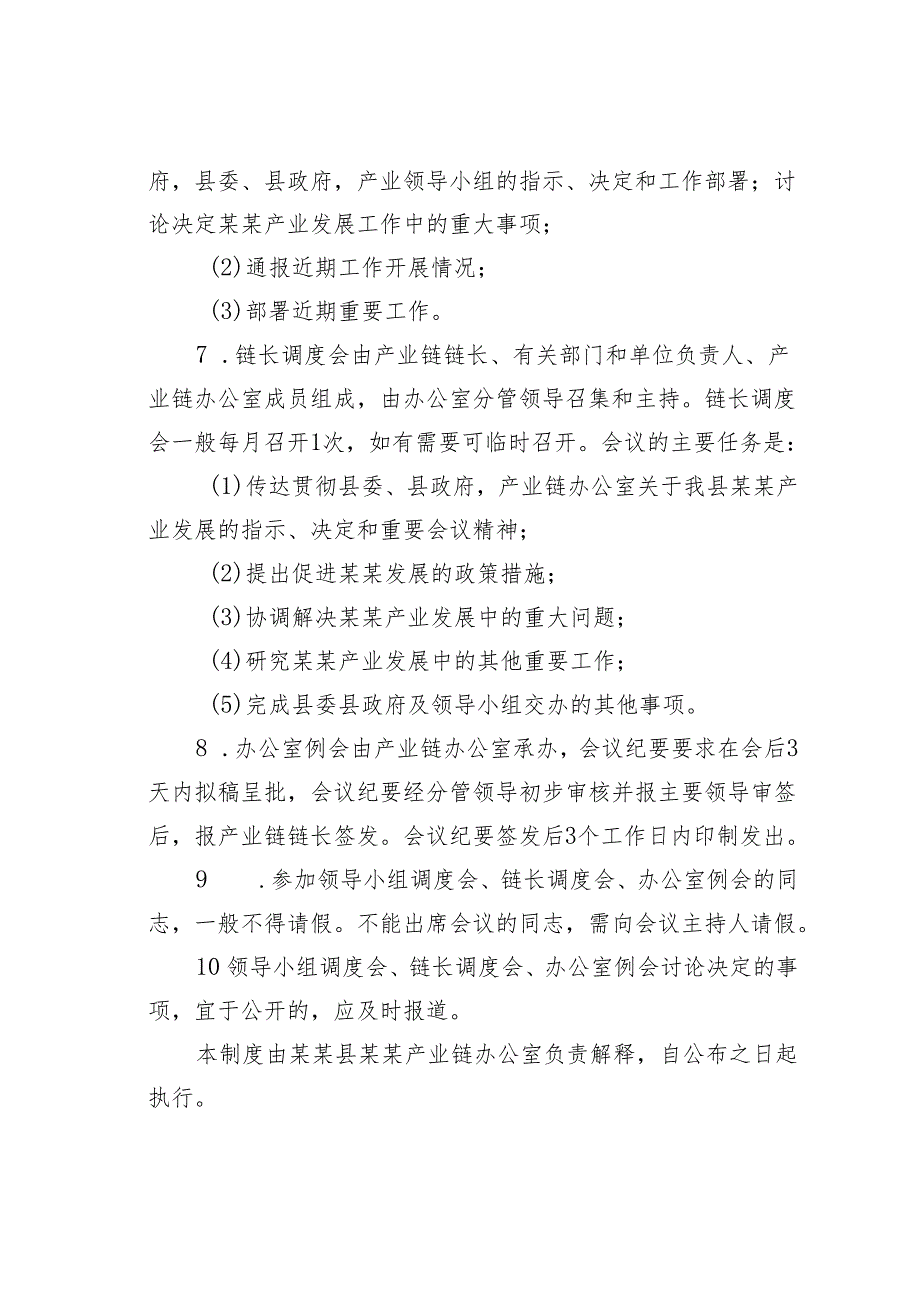 府，县委、县政府，产业领导小组的指示、决定和工作部署；讨
论决定某某产业发展工作中的重大事项；
(2)通报近期工作开展情况；
(3)部署近期重要工作。
7 .链长调度会由产业链链长、有关部门和单位负责人、产
业链办公室成员组成，由办公室分管领导召集和主持。链长调度
会一般每月召开1次，如有需要可临时召开。会议的主要任务是：
(1)传达贯彻县委、县政府，产业链办公室关于我县某某产
业发展的指示、决定和重要会议精神；
(2)提出促进某某发展的政策措施；
(3)协调解决某某产业发展中的重大问题；
(4)研究某某产业发展中的其他重要工作；
(5)完成县委县政府及领导小组交办的其他事项。
8 .办公室例会由产业链办公室承办，会议纪要要求在会后3
天内拟稿呈批，会议纪要经分管领导初步审核并报主要领导审签
后，报产业链链长签发。会议纪要签发后3个工作日内印制发出。
9 .参加领导小组调度会、链长调度会、办公室例会的同
志，一般不得请假。不能出席会议的同志，需向会议主持人请假。
10领导小组调度会、链长调度会、办公室例会讨论决定的事
项，宜于公开的，应及时报道。
本制度由某某县某某产业链办公室负责解释，自公布之日起
执行。